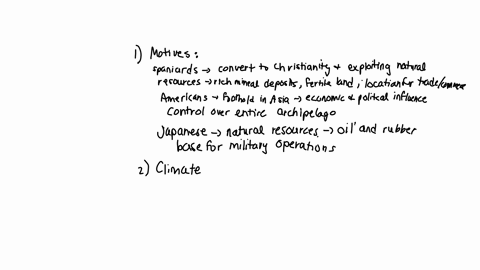 1) Motives:
spaniards → convert to Christianity + exploiting natural
resources → rich mineral deposits, fertile land, location for trade/commerce
Americans → foothold in Asia → economic & political influence
control over entire archipelago
Japanese → natural resources → oil and rubber
base for military operations
2) Climate